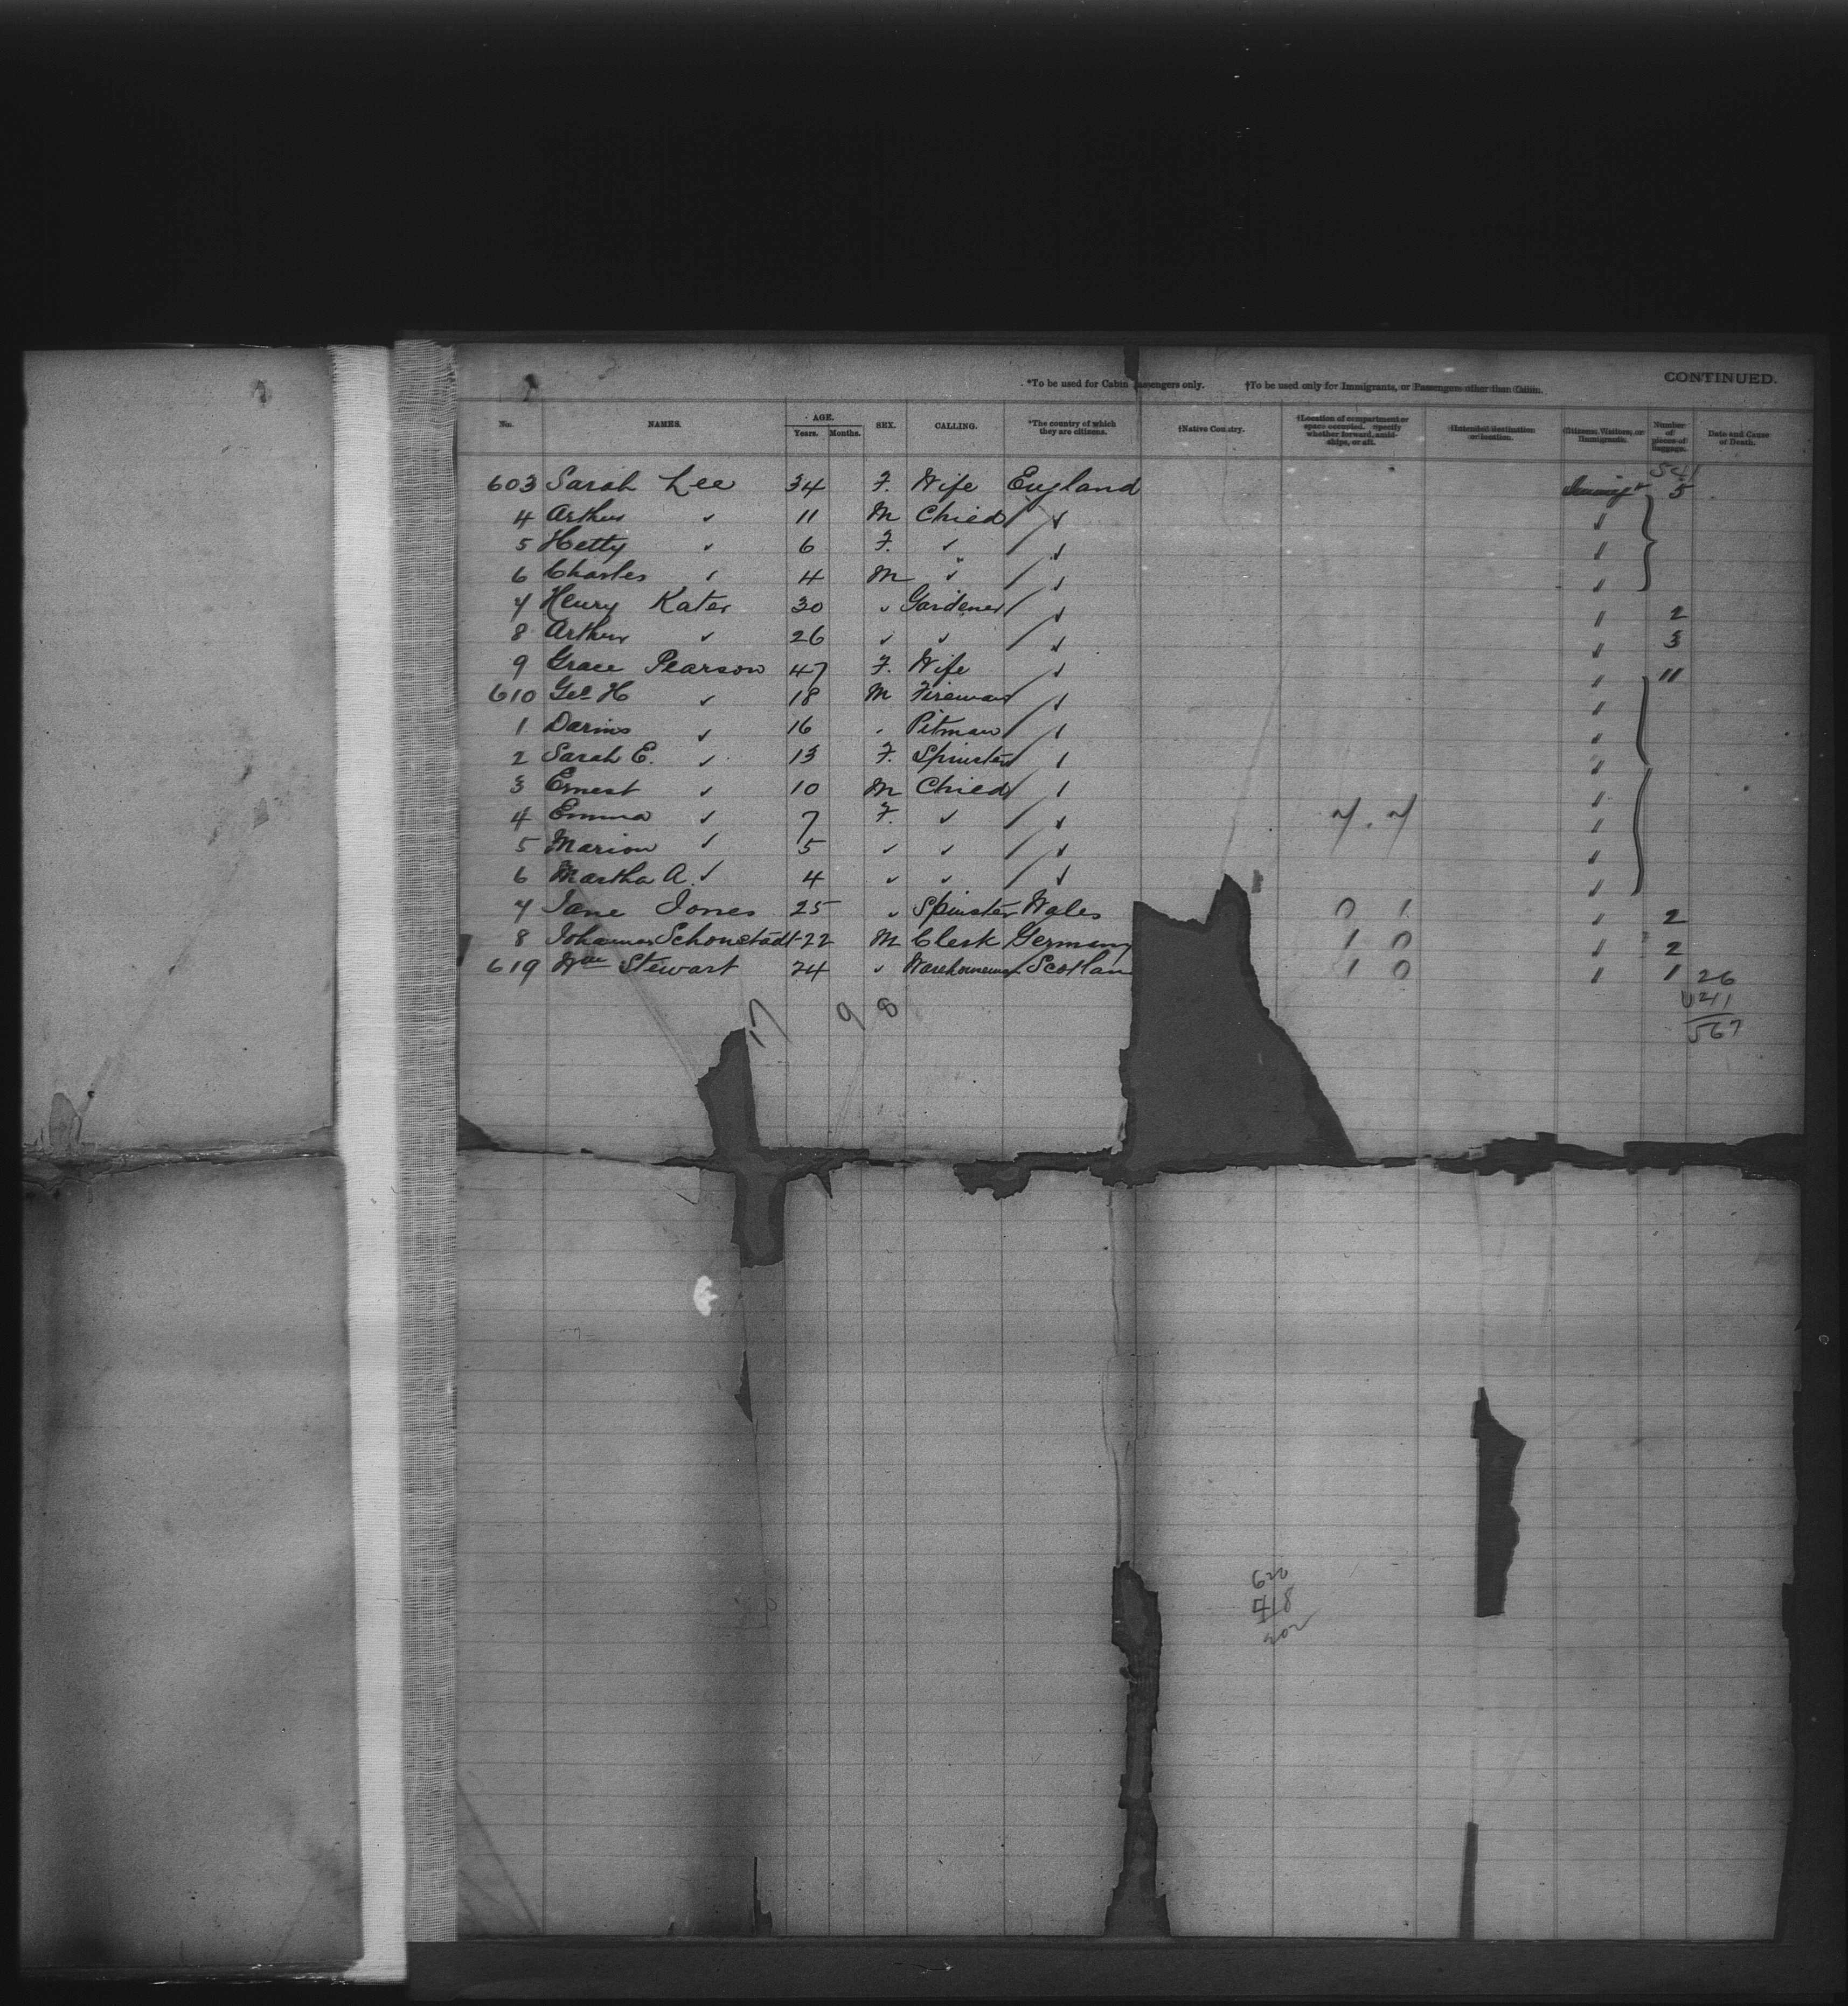 *To be used for Cabin Passengers only. †To be used only for Immigrants, or Passengers other than Cabin. CONTINUED.
No. NAMES. AGE. Years. Months. SEX. CALLING. *The country of which they are citizens. †Native Country. †Location of compartment or space occupied. Specify whether forward, amidships, or aft. †Intended destination or location. Citizens, Visitors, or Immigrants. Number of pieces of Baggage. Date and Cause of Death.
541
603 Sarah Lee 34 F. Wife England 5
4 Arthur " 11 M Child " "
5 Hetty " 6 F. " " "
6 Charles " 4 M " " "
7 Henry Kater 30 " Gardener " " 2
8 Arthur " 26 " " " " 3
9 Grace Pearson 47 F. Wife " " 11
610 Geo H " 18 M Fireman " "
1 Darius " 16 " Pitman " "
2 Sarah E. " 13 F. Spinster " "
3 Ernest " 10 M Child " "
4 Emma " 7 F. " " 7.7 "
5 Marion " 5 " " " "
6 Martha A. " 4 " " " "
7 Jane Jones 25 " Spinster Wales 0 1 " 2
8 Johannes Schonstadt 22 M Clerk Germany 1 0 " 2
619 Wm Stewart 24 " Warehouseman Scotlan 1 0 " 1 26
17 9 8 541
567
620
418
202